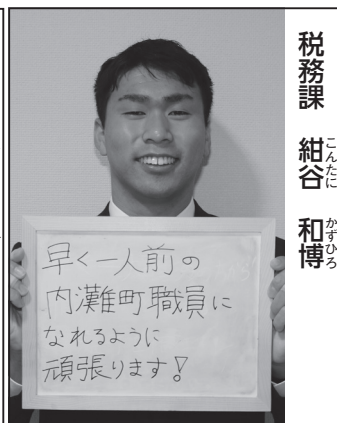 税務課 紺谷 和博
こんたに かずひろ
早く一人前の
内灘町職員に
なれるように
頑張ります!